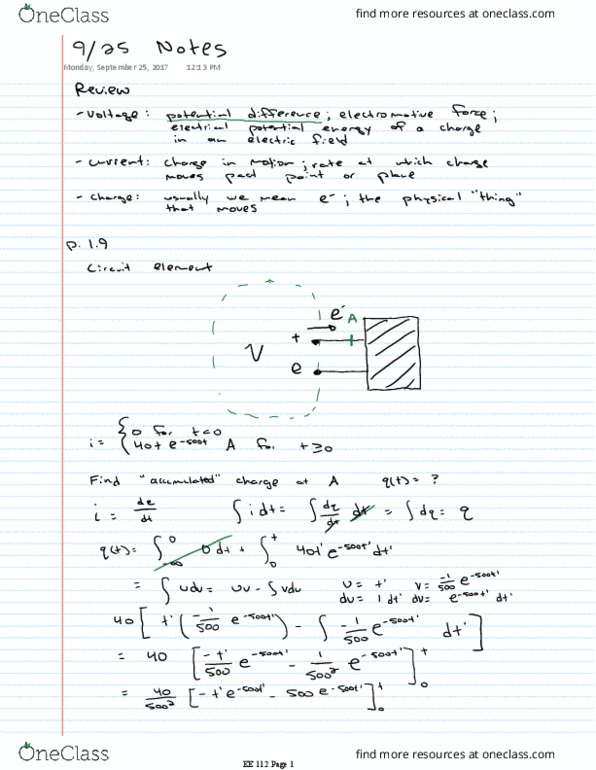 OneClass
find more resources at oneclass.com
9/25 Notes
Monday, September 25, 2017 12:13 PM
Review
- Voltage: potential difference; electromotive force;
electrical potential energy of a charge
in an electric field
- current: charge in motion; rate at which charge
moves past point or plane
- charge: usually we mean e⁻; the physical "thing"
that moves
p. 1.9
Circuit element
e⁻ A
+
V
e
i = { 0 for t<0
40t e^-500t A for t≥0
Find "accumulated" charge at A q(t) = ?
i = de/dt ∫ i dt = ∫ dq/dt dt = ∫ dq = q
q(t) = ∫_-∞^0 0 dt + ∫_0^t 40t' e^-500t' dt'
= ∫ u dv = uv - ∫ v du u = t' v = -1/500 e^-500t'
du = 1 dt' dv = e^-500t' dt'
40 [ t' ( -1/500 e^-500t' ) - ∫ -1/500 e^-500t' dt' ]
= 40 [ -t'/500 e^-500t' - 1/500² e^-500t' ]_0^t
= 40/500² [ -t' e^-500t' - 500 e^-500t' ]_0^t
OneClass
EE 112 Page 1
find more resources at oneclass.com